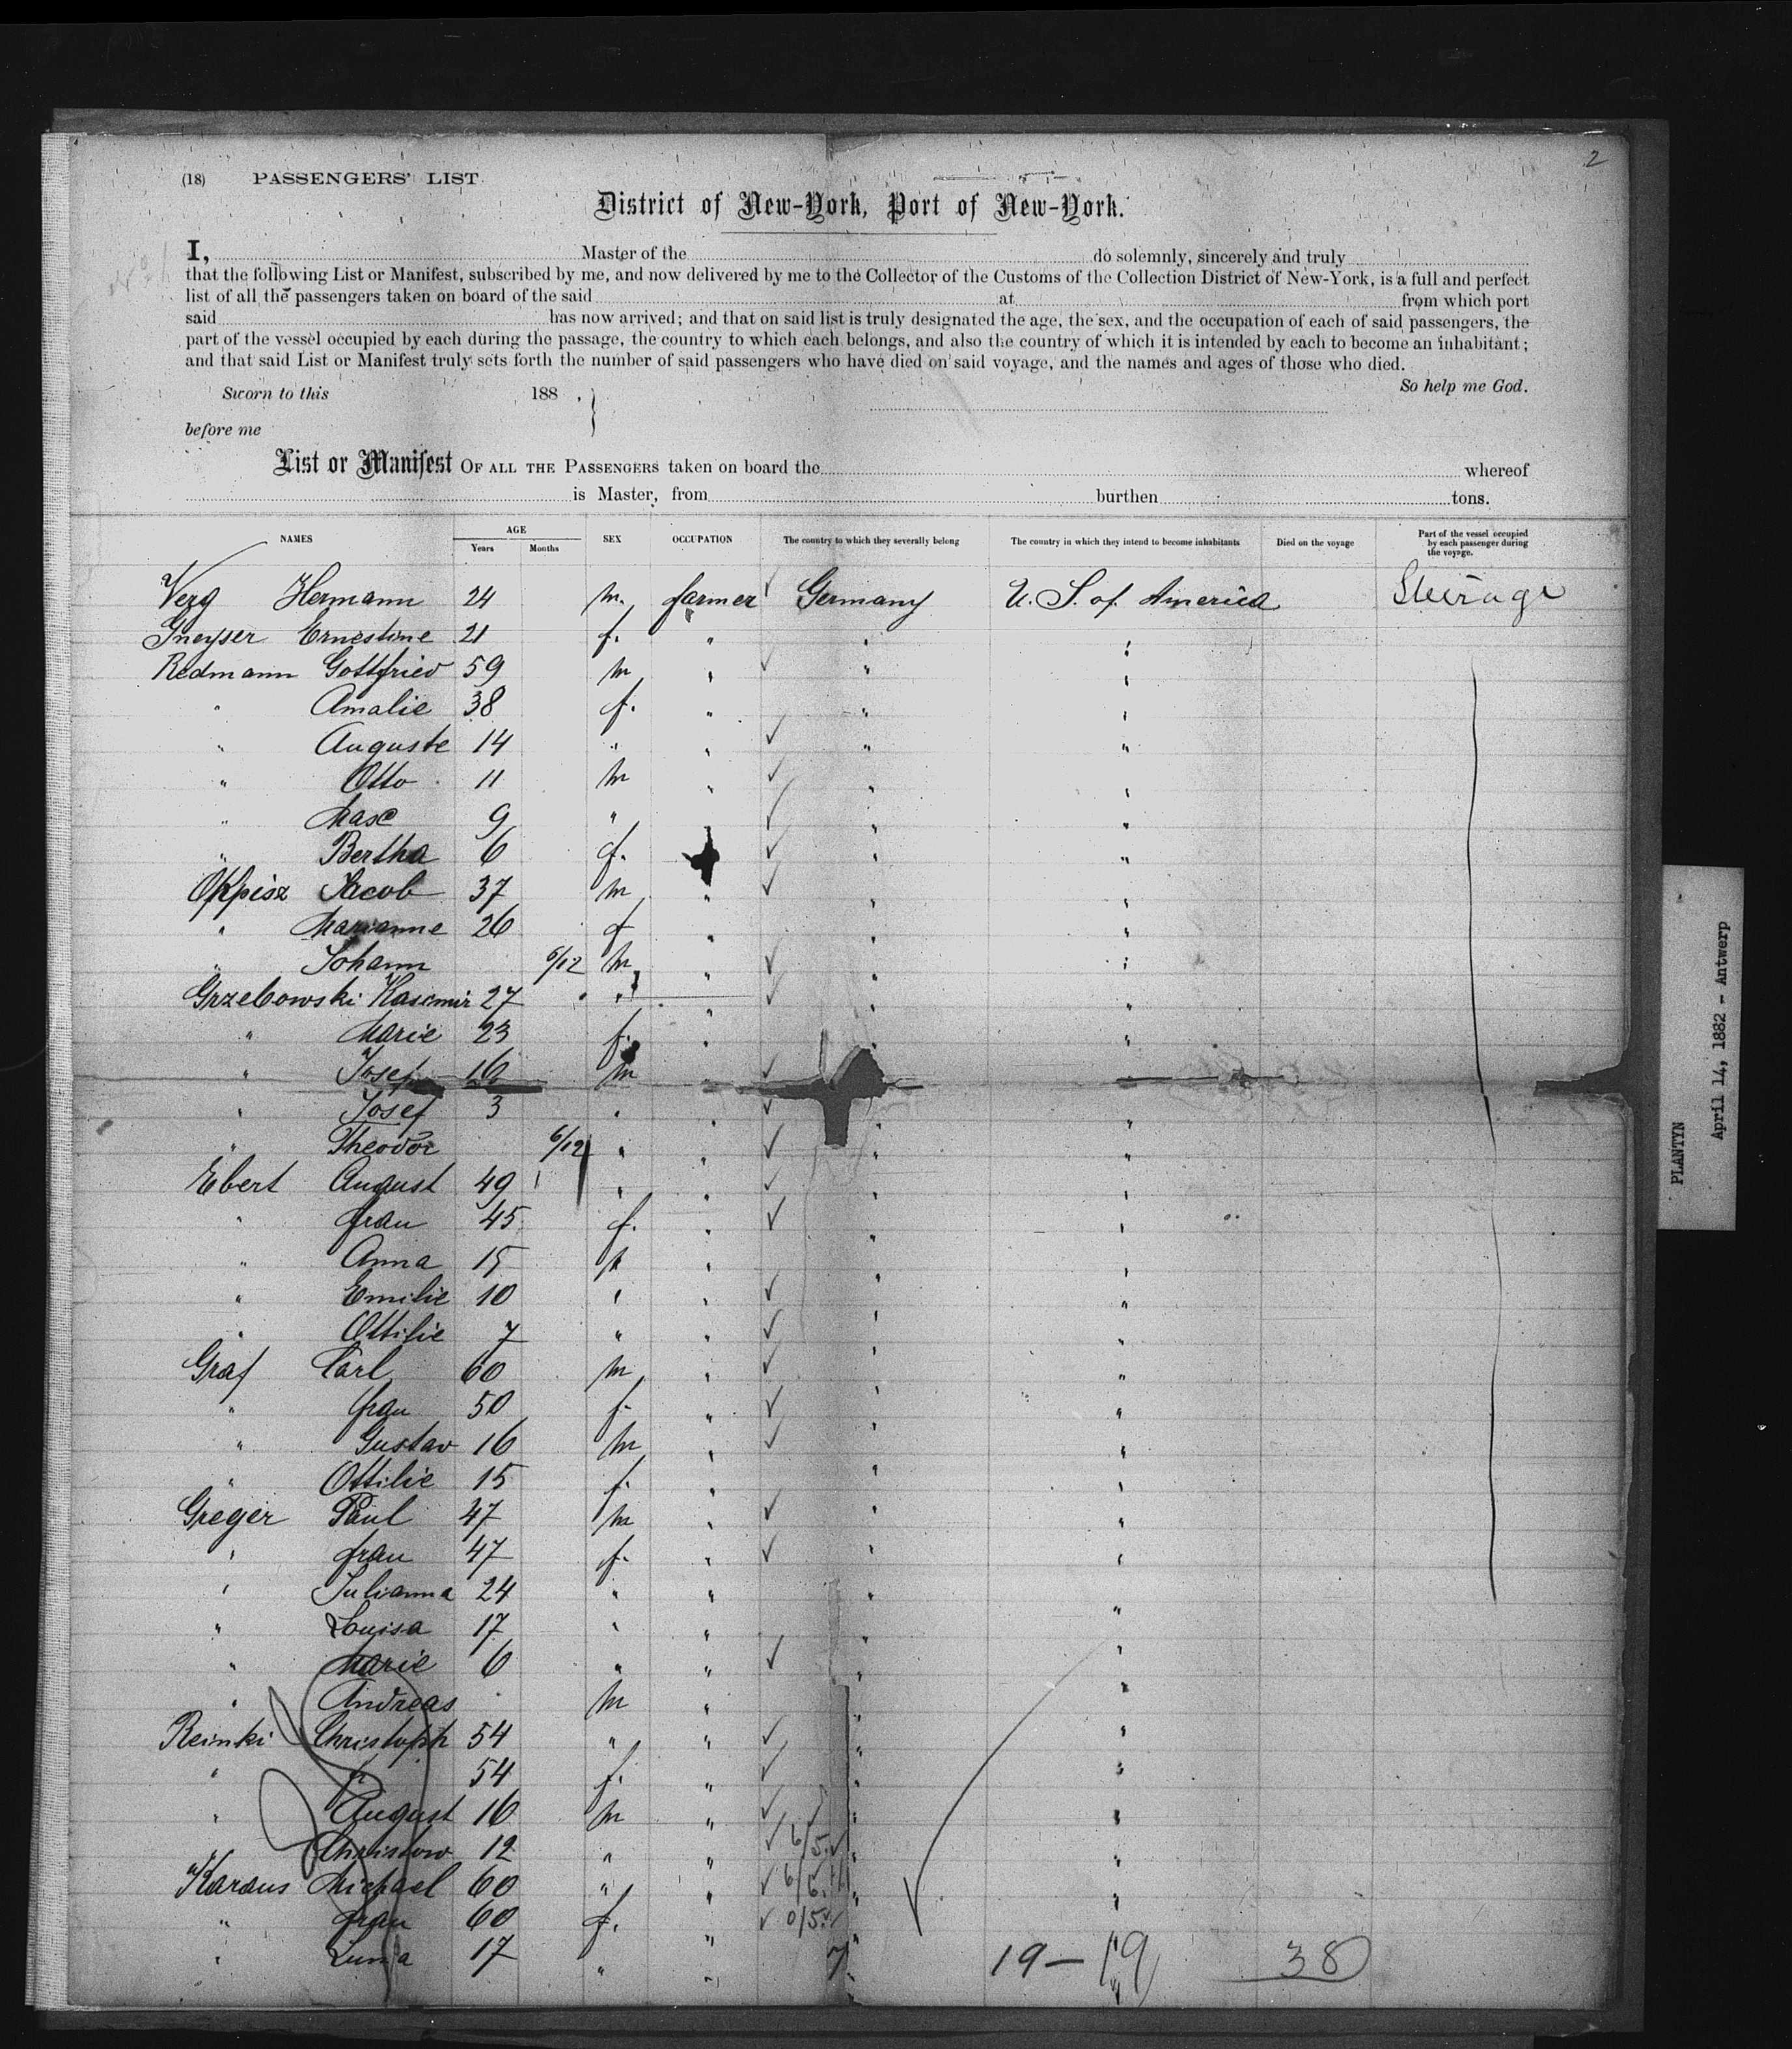 2
(18) PASSENGERS' LIST.
District of New-York, Port of New-York.
I, Master of the do solemnly, sincerely and truly
that the following List or Manifest, subscribed by me, and now delivered by me to the Collector of the Customs of the Collection District of New-York, is a full and perfect
list of all the passengers taken on board of the said at from which port
said has now arrived; and that on said list is truly designated the age, the sex, and the occupation of each of said passengers, the
part of the vessel occupied by each during the passage, the country to which each belongs, and also the country of which it is intended by each to become an inhabitant;
and that said List or Manifest truly sets forth the number of said passengers who have died on said voyage, and the names and ages of those who died.
So help me God.
Sworn to this 188 ,
before me
List or Manifest OF ALL THE PASSENGERS taken on board the whereof
is Master, from burthen tons.
NAMES AGE Years Months SEX OCCUPATION The country to which they severally belong The country in which they intend to become inhabitants Died on the voyage Part of the vessel occupied by each passenger during the voyage.
Verg Hermann 24 m. farmer Germany U. S. of America Steerage
Gneyser Ernestine 21 f. " " "
Redmann Gottfried 59 m " " "
" Amalie 38 f. " " "
" Auguste 14 " " " "
" Otto 11 m " " "
" Max 9 " " " "
" Bertha 6 f. " "
Okpisz Jacob 37 m " " "
" Marianne 26 f " " "
" Johann 6/12 m " " "
Grzebowski Kasimir 27 " " " "
" Marie 23 f. " " "
" Josef 16 m "
" Josef 3 " " " "
" Theodor 6/12 " " " "
Ebert August 49 " " " "
" frau 45 f. " " "
" Anna 15 " " "
" Emilie 10 " " " "
" Ottilie 7 " " " "
Graf Carl 60 m " " "
" frau 50 f. " " "
" Gustav 16 m " " "
" Ottilie 15 f. " " "
Greger Paul 47 m " " "
" frau 47 f. " " "
" Julianna 24 " " " "
" Louisa 17 " " " "
" Marie 6 " " " "
" Andreas m " " "
Reinki Christoph 54 " " " "
" 54 f. " " "
" August 16 m " " "
" 12 " " " 6/5
Karaus Michael 60 " " " "
" frau 60 f. " 0/5 "
" 17 " " 7
19 - 19 38
PLANTYN
April 14, 1882 - Antwerp